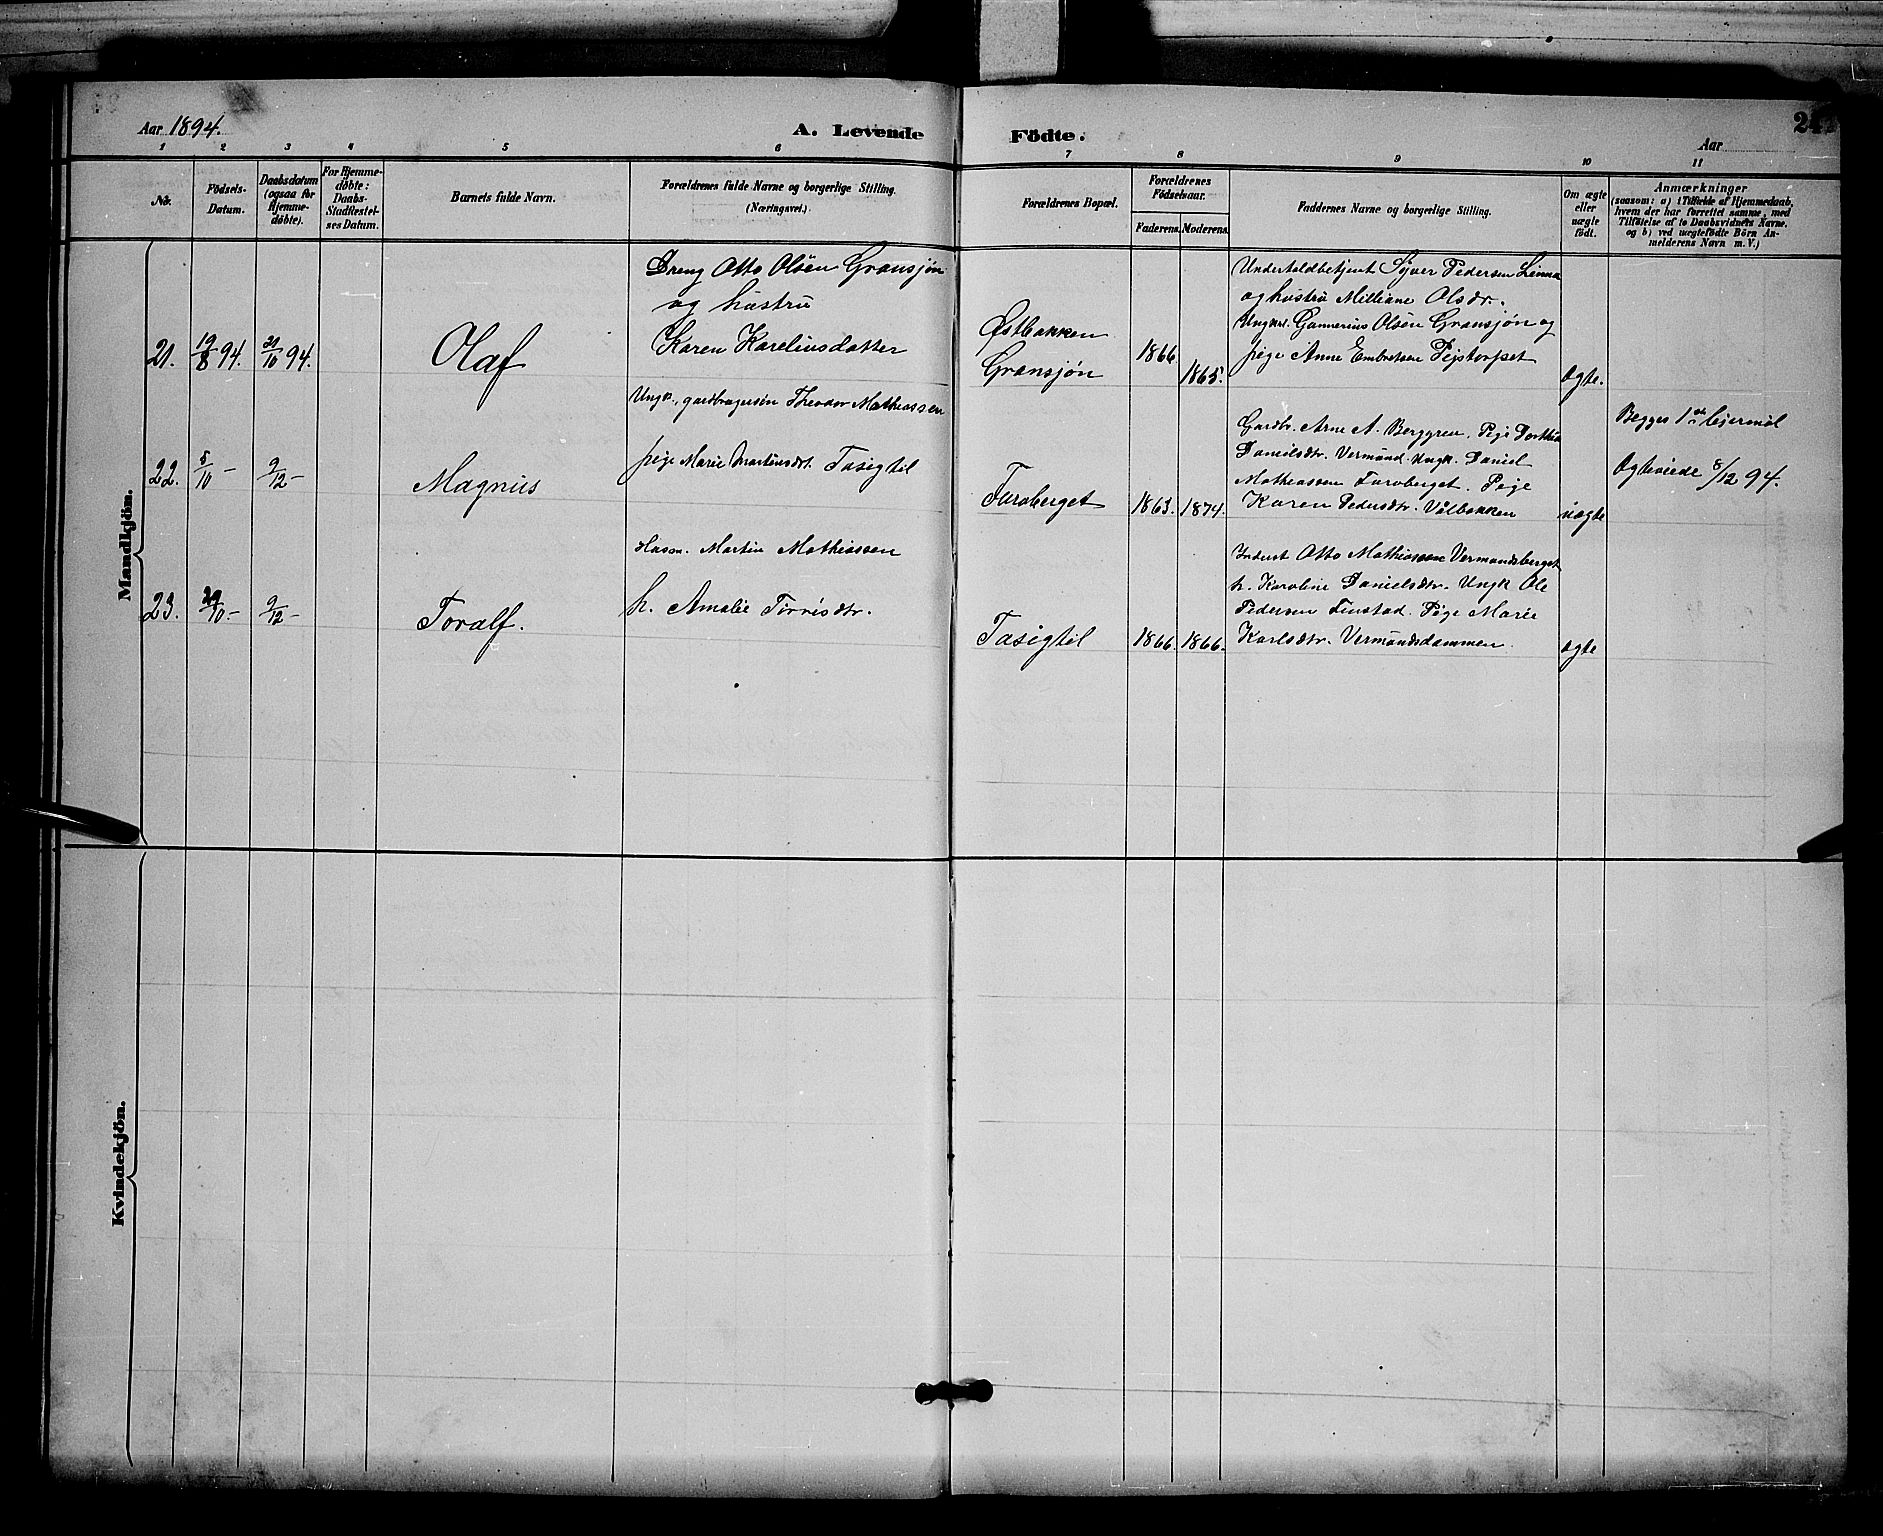 Aar 1894.
A. Levende Födte.
24
Aar
1 2 3 4 5 6 7 8 9 10 11
No.
Födsels-
Datum.
Daabsdatum
(ogsaa for
Hjemme-
döbte).
For Hjemme-
döbte:
Daabs-
Stadfæstel-
ses Datum.
Barnets fulde Navn.
Forældrenes fulde Navne og borgerlige Stilling.
(Næringsvei.)
Forældrenes Bopæl.
Forældrenes
Födselsaar.
Faderens. Moderens.
Faddernes Navne og borgerlige Stilling.
Om ægte
eller
uægte
födt.
Anmærkninger
(saasom: a) i Tilfælde af Hjemmedaab,
hvem der har forrettet samme, med
Tilföielse af to Daabsvidners Navne.
og b) ved uægtefödte Börn An-
melderens Navn m. V.)
Mandkjön.
21. 19/8 94. 21/10 94.
Olaf
Dreng Otto Olsen Gransjøn
og hustru
Karen Kareliusdatter
Østbakken
Gransjøn
1866
1865.
Underholdbetjent Syver Pedersen Linna
og hustru Milliane Olsdr.
Ungkl. Gunnerius Olsen Gransjøn og
pige Anne Embretsen Pejstorpet
ægte.
22. 5/10 – 9/12 –
Magnus
Ungk., gardbrugersøn Theodor Mathiassen
pige Marie Martinsdt. Tasigtil
Furuberget
1863. 1874.
Gardbr. Arne A. Berggren. Pige Dorthea
Danielsdtr. Vermund. Ungk. Daniel
Mathiassen Furuberget. Pige
Karen Pedersdtr. Vålbakken
uægte
Begges 1ste leiermål
Ægteviede 8/12 94.
23. 29/10 – 9/12 –
Toralf.
Husm. Martin Mathiassen
h. Amalie Torrisdtr.
Tasigtil
1866. 1866.
Inderst Otto Mathiassen Vermundsberget
h. Karoline Danielsdtr. Ungk Ole
Pedersen Finstad. Pige Marie
Karlsdtr. Vermundsdammen.
ægte
Kvindekjön.